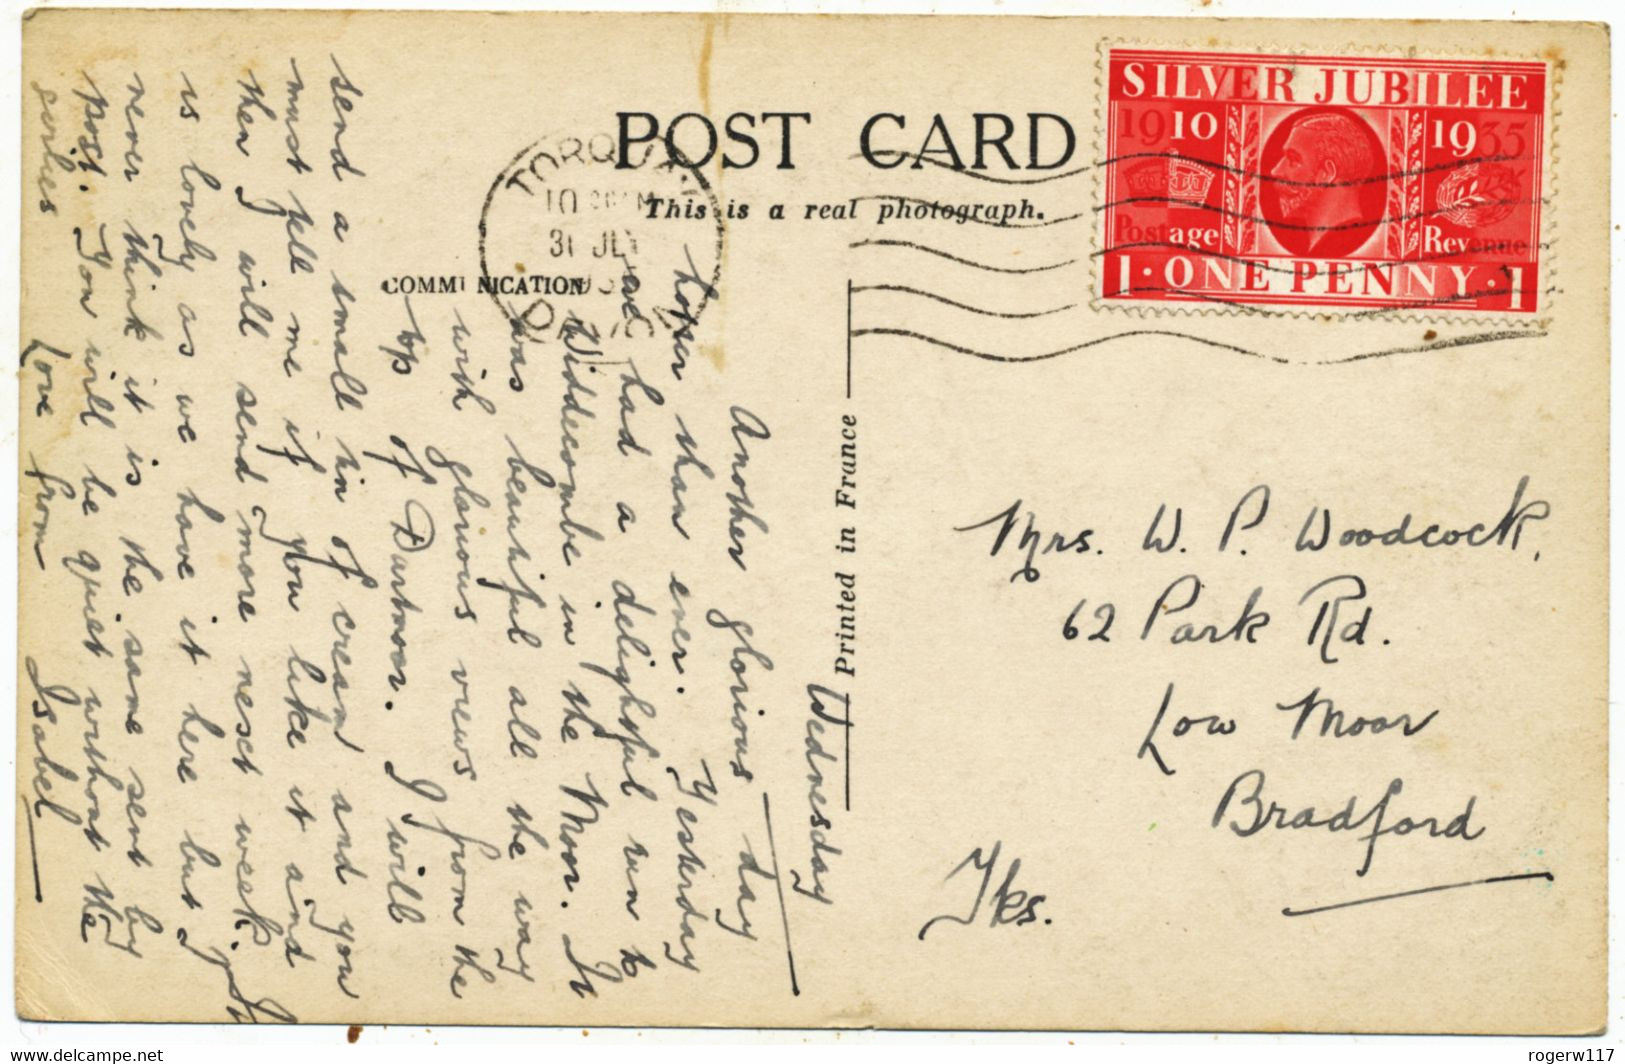 POST CARD
This is a real photograph.
COMMUNICATION
TORQUAY
10 30 AM
31 JLY
DEVON
SILVER JUBILEE
1910 1935
Postage Revenue
1 · ONE PENNY · 1
Printed in France
Wednesday
Another glorious day
hotter than ever. Yesterday
we had a delightful run to
Widdecombe in the Moor. It
was beautiful all the way
with glorious views from the
top of Dartmoor. I will
send a small tin of cream and you
must tell me if you like it and
then I will send more next week. It
is lovely as we have it here but I
never think it is the same sent by
post. You will be quiet without the
girlies Love from Isabel
Mrs. W. P. Woodcock,
62 Park Rd.
Low Moor
Bradford
Yks.
rogerw117